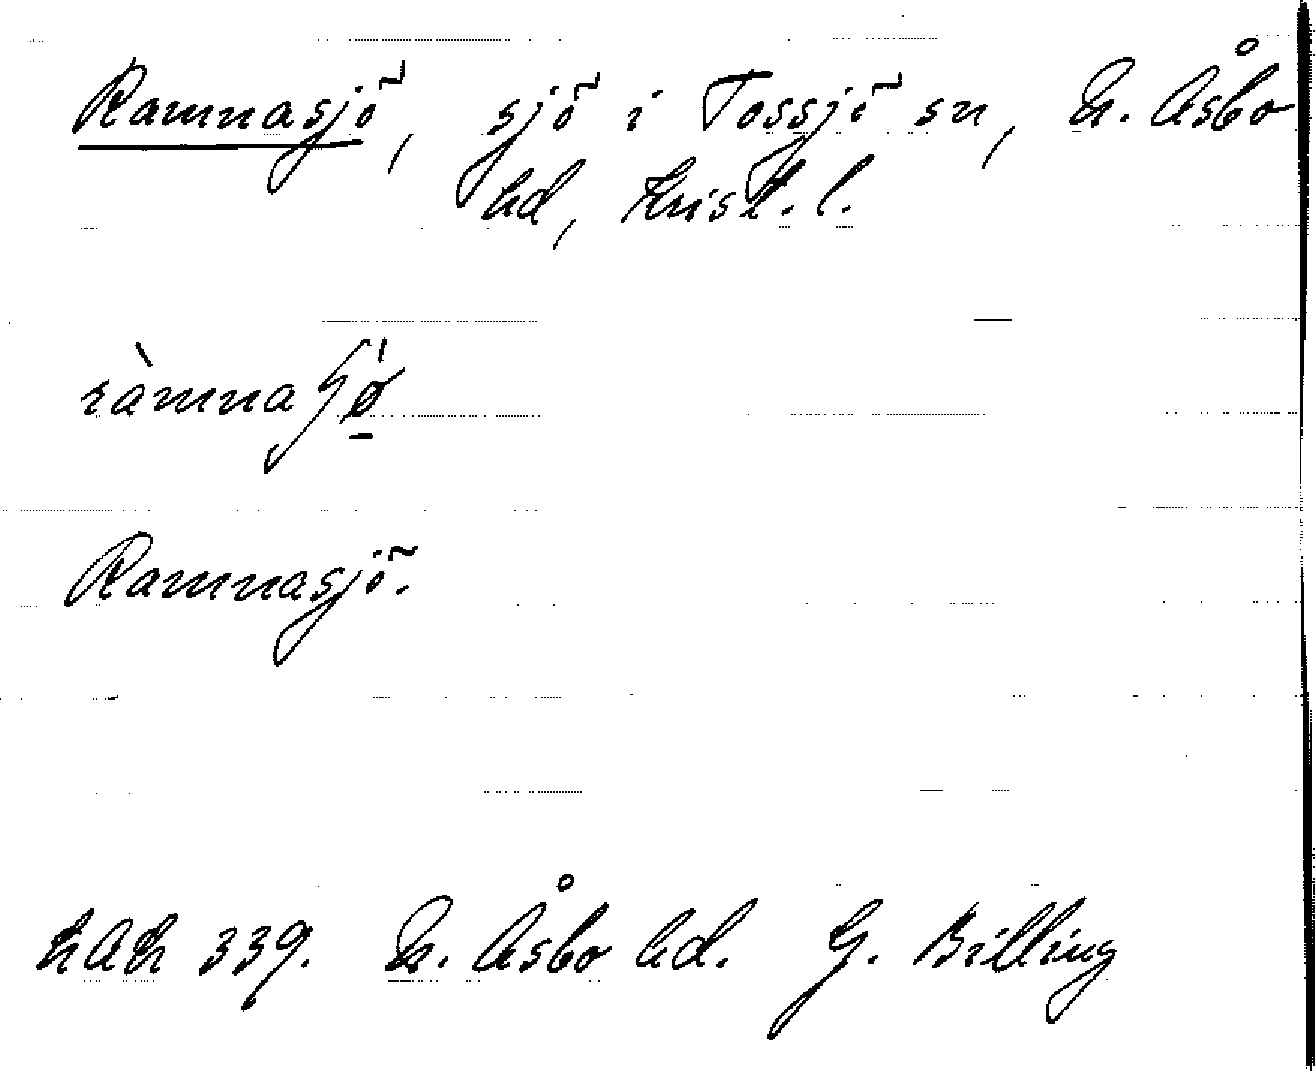 Ramnasjö, sjö i Tossjö sn, N. Åsbo
hd, Krist. l.
ràmnaʃǿ
Ramnasjö.
LAL 339. N. Åsbo hd. G. Billing